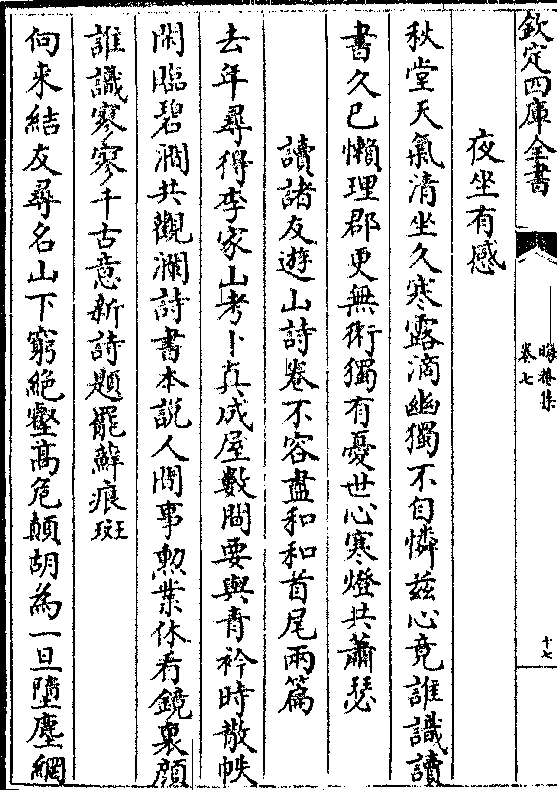 欽定四庫全書
晦菴集
卷七
十七
夜坐有感
秋堂天氣清坐久寒露滴幽獨不自憐兹心竟誰識讀
書久已懶理郡更無術獨有憂世心寒燈共蕭瑟
讀諸友遊山詩卷不容盡和和首尾兩篇
去年尋得李家山考卜真成屋數間要與青衿時散帙
閑臨碧澗共觀瀾詩書本説人間事勲業休看鏡裏顔
誰識寥寥千古意新詩題罷蘚痕斑
向來結友尋名山下窮絶壑髙危顛胡為一旦墮塵網